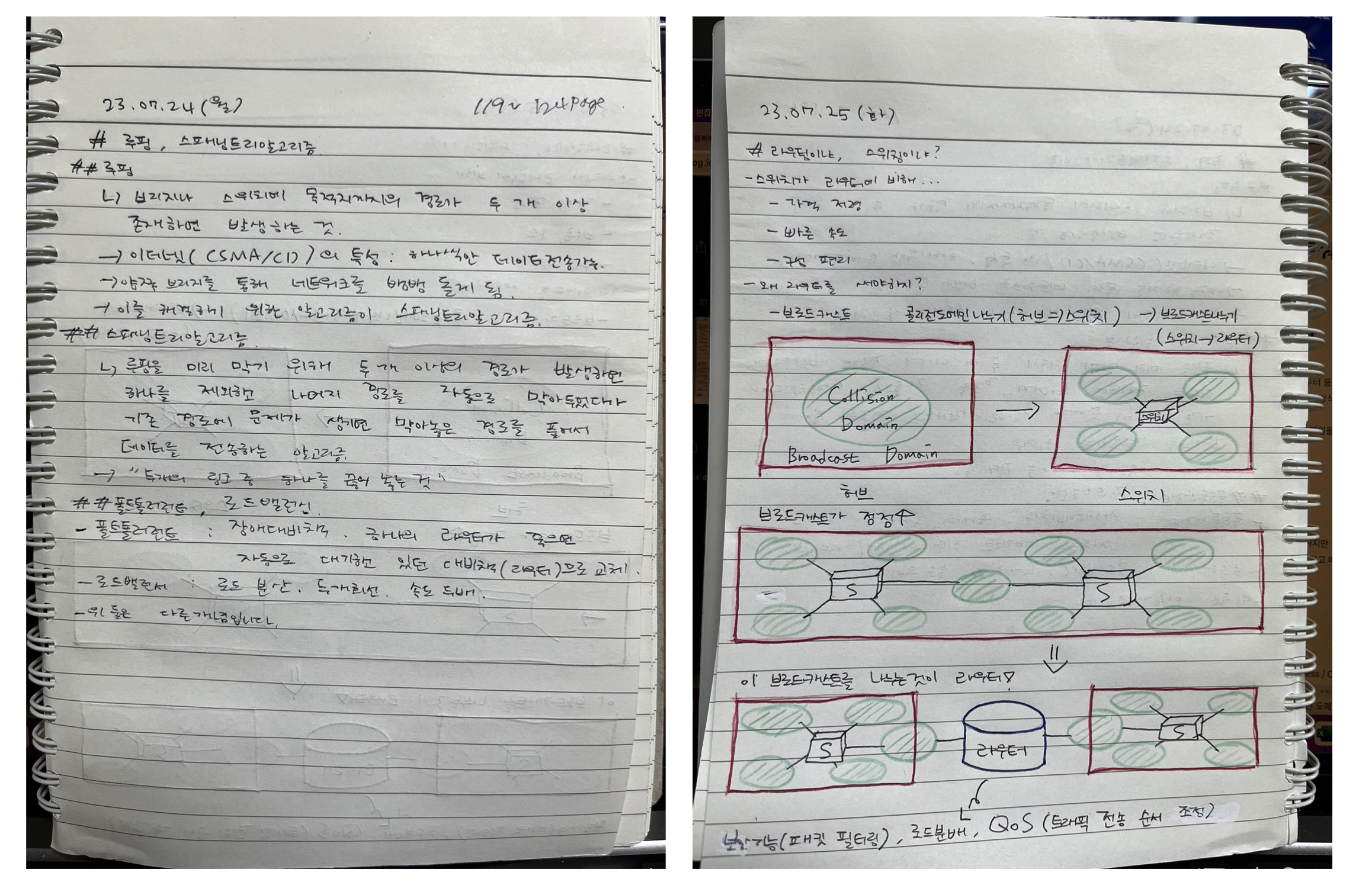 23.07.24(월) 119~124page
# 루핑, 스패닝트리알고리즘
## 루핑
브리지나 스위치에 목적지까지의 경로가 두 개 이상
존재하면 발생하는 것.
→ 이더넷(CSMA/CD)의 특성: 하나씩만 데이터전송가능.
→ 양쪽 브리지를 통해 네트워크를 뱅뱅 돌게 됨.
→ 이를 해결하기 위한 알고리즘이 스패닝트리알고리즘.
## 스패닝트리알고리즘.
루핑을 미리 막기 위해 두 개 이상의 경로가 발생하면
하나를 제외한 나머지 경로를 자동으로 막아두었다가
기존 경로에 문제가 생기면 막아놓은 경로를 풀어서
데이터를 전송하는 알고리즘.
→ "두개의 링크 중 하나를 끊어 놓는 것"
## 폴트톨러런트, 로드밸런싱.
- 폴트톨러런트 : 장애대비책. 하나의 라우터가 죽으면
자동으로 대기하고 있던 대비책(라우터)으로 교체.
- 로드밸런서 : 로드 분산. 두개회선. 속도 두배.
- 위 둘은 다른개념입니다.
23.07.25(화)
# 라우팅이냐, 스위칭이냐?
- 스위치가 라우터에 비해...
- 가격 저렴
- 빠른 속도
- 구성 편리
- 왜 라우터를 써야하지?
- 브로드캐스트 콜리전도메인나누기(허브⇒스위치) → 브로드캐스트나누기
(스위치→라우터)
Collision
Domain
Broadcast Domain
→
스위치
허브 스위치
브로드캐스트가 점점↑
S S
⇓
이 브로드캐스트를 나누는것이 라우터!
S 라우터 S
보안기능(패킷 필터링), 로드분배, QoS(트래픽 전송 순서 조정)